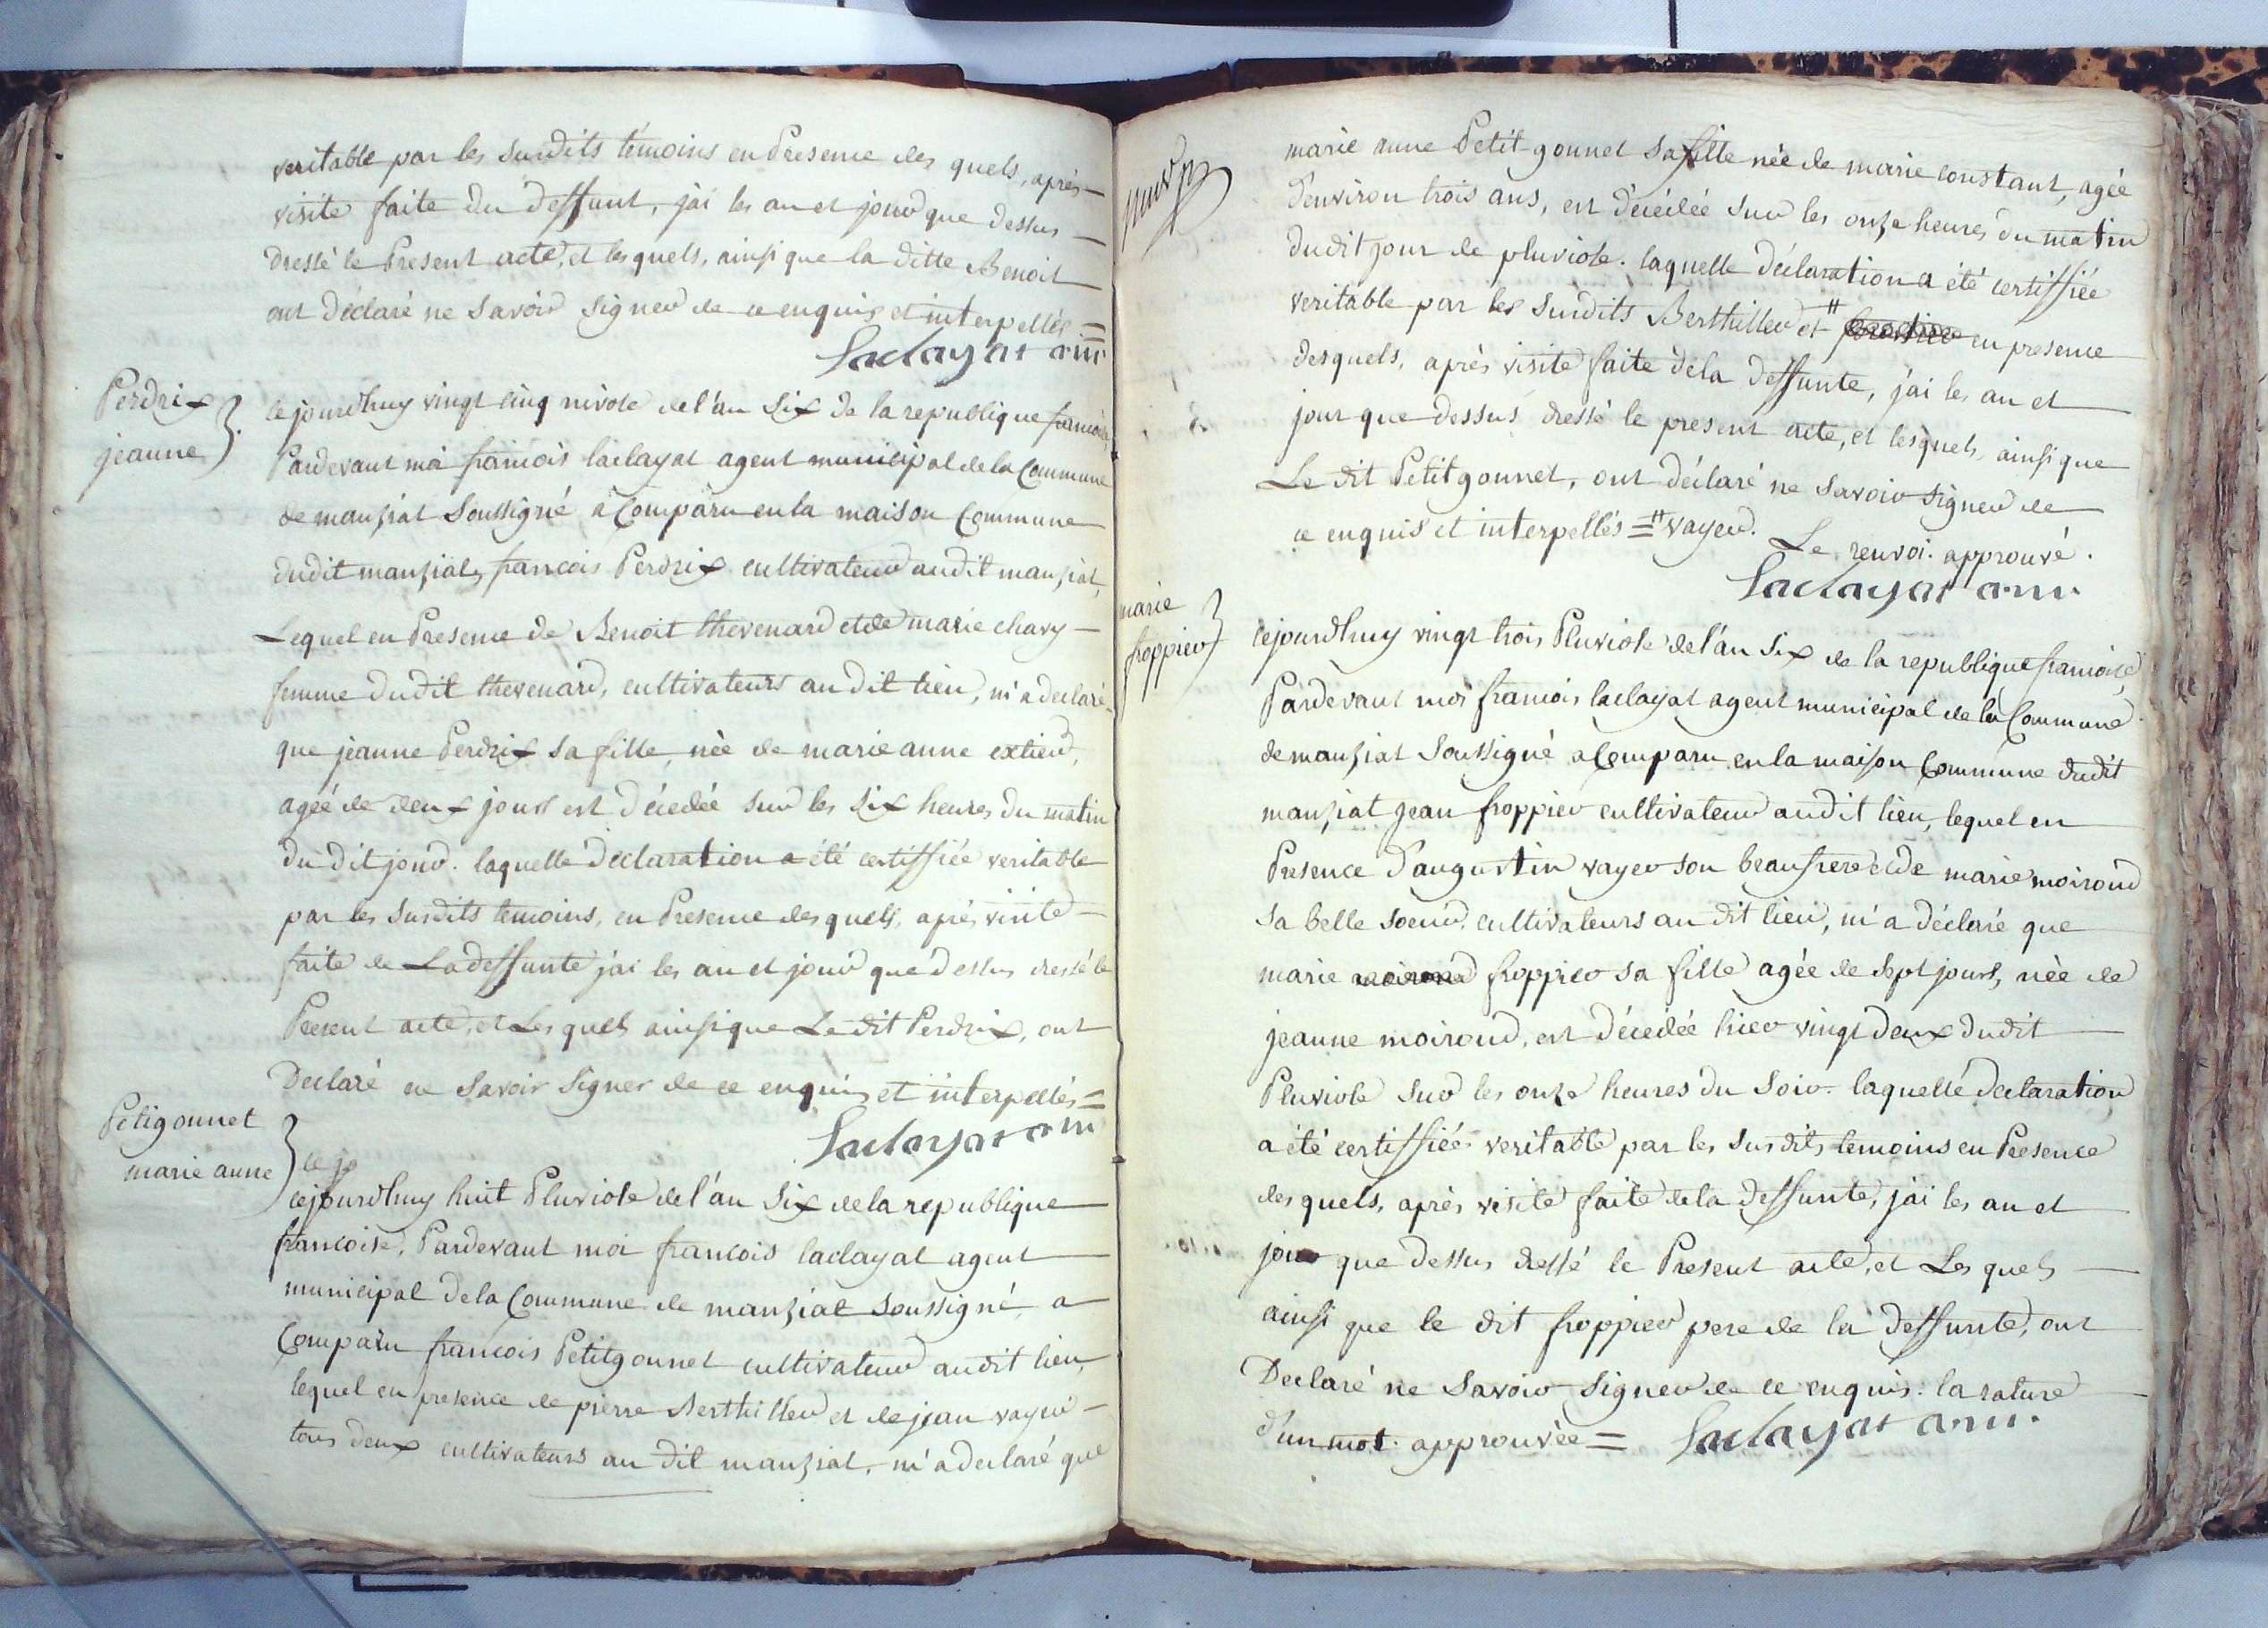 veritable par les susdits témoins en Presence des quels, après
visite faite du deffunt, j'ai les an et jour que dessus
dressé le Present acte, et lesquels, ainsi que la ditte Benoit
ont déclaré ne savoir signer de ce enquis et interpellés =
Laclayat am
Perdrix
jeanne
cejourdhuy vingt cinq nivose de l'an six de la republique francoise,
Pardevant moi francois laclayat agent municipal de la Commune
de manziat soussigné a Comparu en la maison Commune
dudit manziat, francois Perdrix cultivateur audit manziat,
Lequel en Presence de Benoit thevenard et de marie chavy
femme dudit thevenard, cultivateurs au dit lieu, m'a declaré
que jeanne Perdrix sa fille, née de marie anne extier,
agée de deux jours est décedée sur les six heures du matin
du dit jour. laquelle declaration a été certiffiée veritable
par les susdits temoins, en Presence des quels, après visite
faite de La deffunte j'ai les an et jour que dessus dressé le
Present acte, et Les quels ainsi que Le dit Perdrix, ont
Declaré ne savoir signer de ce enquis et interpellés =
Laclayat am
Petigonnet
marie anne
ce jo
cejourdhuy huit Pluviose de l'an six de la republique
francoise, Pardevant moi francois laclayat agent
municipal de la Commune de manziat soussigné a
Comparu francois Petitgonnet cultivateur audit lieu,
lequel en presence de pierre Berthillier et de jean vayer
tous deux cultivateurs au dit manziat, m'a declaré que
marie anne Petit-gonnet sa fille née de marie constant, agée
d'environ trois ans, est décédée sur les onze heures du matin
dudit jour de pluviose. laquelle déclaration a été certiffiée
veritable par les susdits Berthiller et # en presence
desquels, après visite faite de la deffunte, j'ai les an et
jour que dessus dressé le present acte, et lesquels, ainsi que
Le dit Petitgonnet, ont déclaré ne savoir signer de
ce enquis et interpellés = # vayer. Le renvoi approuvé.
Laclayat a.m.
marie
froppier
cejourdhuy vingt trois Pluviose de l'an six de la republique francoise,
Pardevant moi francois laclayat agent municipal de la Commune
de manziat soussigné a Comparu en la maison Commune dudit
manziat jean froppier cultivateur audit lieu, lequel en
Presence d'augustin vayer son beaufrere et de marie moiroud
sa belle soeur, cultivateurs au dit lieu, m'a déclaré que
marie moiroud froppier sa fille agée de sept jours, née de
jeanne moiroud, est décédée hier vingt deux dudit
Pluviose sur les onze heures du soir. laquelle declaration
a été certiffiée veritable par les susdits temoins en Presence
des quels, après visite faite de la deffunte, j'ai les an et
jour que dessus dressé le Present acte, et Les quels
ainsi que le dit froppier pere de la deffunte, ont
Declaré ne savoir signer de ce enquis. la rature
d'un mot. approuvée = Laclayat a.m.